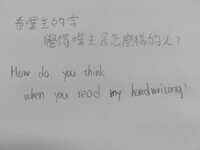 看噗主的字
覺得噗主是怎麼樣的人?
How do you think
when you read my handwriting?